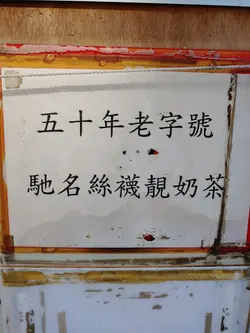 五十年老字號
馳名絲襪靚奶茶